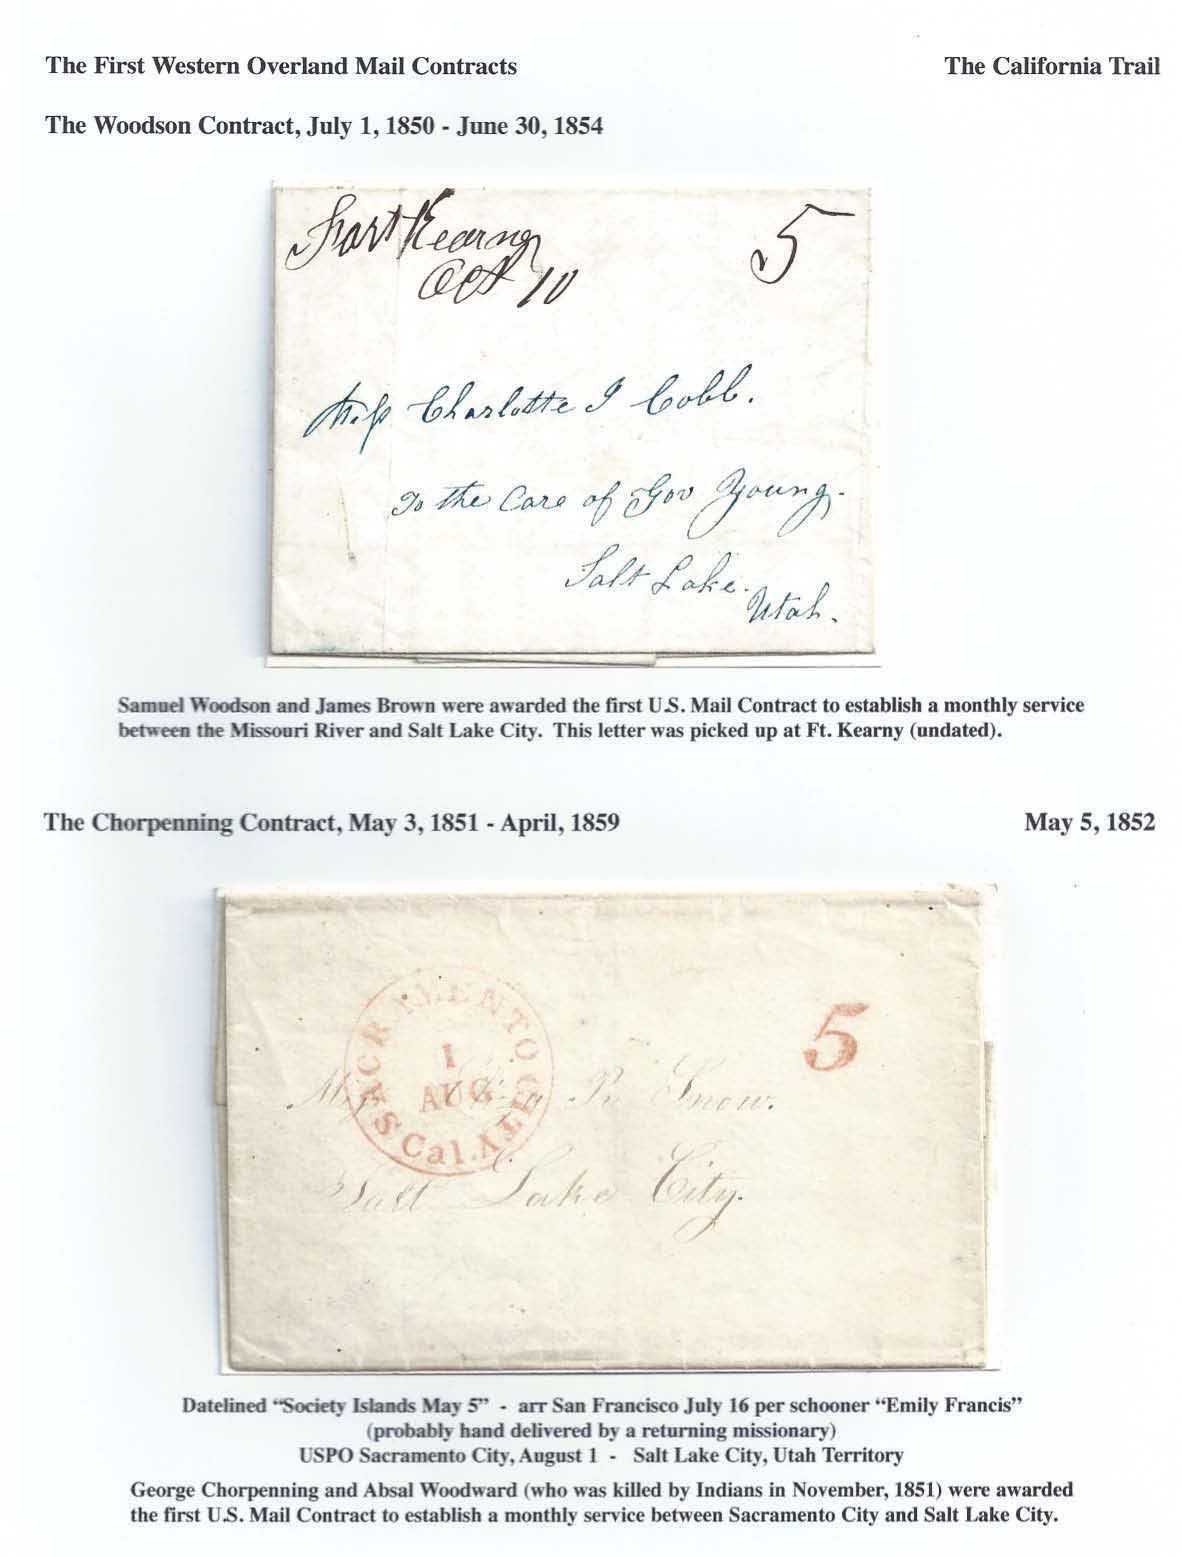 The First Western Overland Mail Contracts The California Trail
The Woodson Contract, July 1, 1850 - June 30, 1854
Fort Kearny 5
Oct 10
Miss Charlotte I Cobb.
To the Care of Gov Young.
Salt Lake.
Utah.
Samuel Woodson and James Brown were awarded the first U.S. Mail Contract to establish a monthly service
between the Missouri River and Salt Lake City. This letter was picked up at Ft. Kearny (undated).
The Chorpenning Contract, May 3, 1851 - April, 1859 May 5, 1852
SACRAMENTO CITY
1
AUG
Cal.
5
Snow.
Salt Lake City.
Datelined “Society Islands May 5” - arr San Francisco July 16 per schooner “Emily Francis”
(probably hand delivered by a returning missionary)
USPO Sacramento City, August 1 - Salt Lake City, Utah Territory
George Chorpenning and Absal Woodward (who was killed by Indians in November, 1851) were awarded
the first U.S. Mail Contract to establish a monthly service between Sacramento City and Salt Lake City.